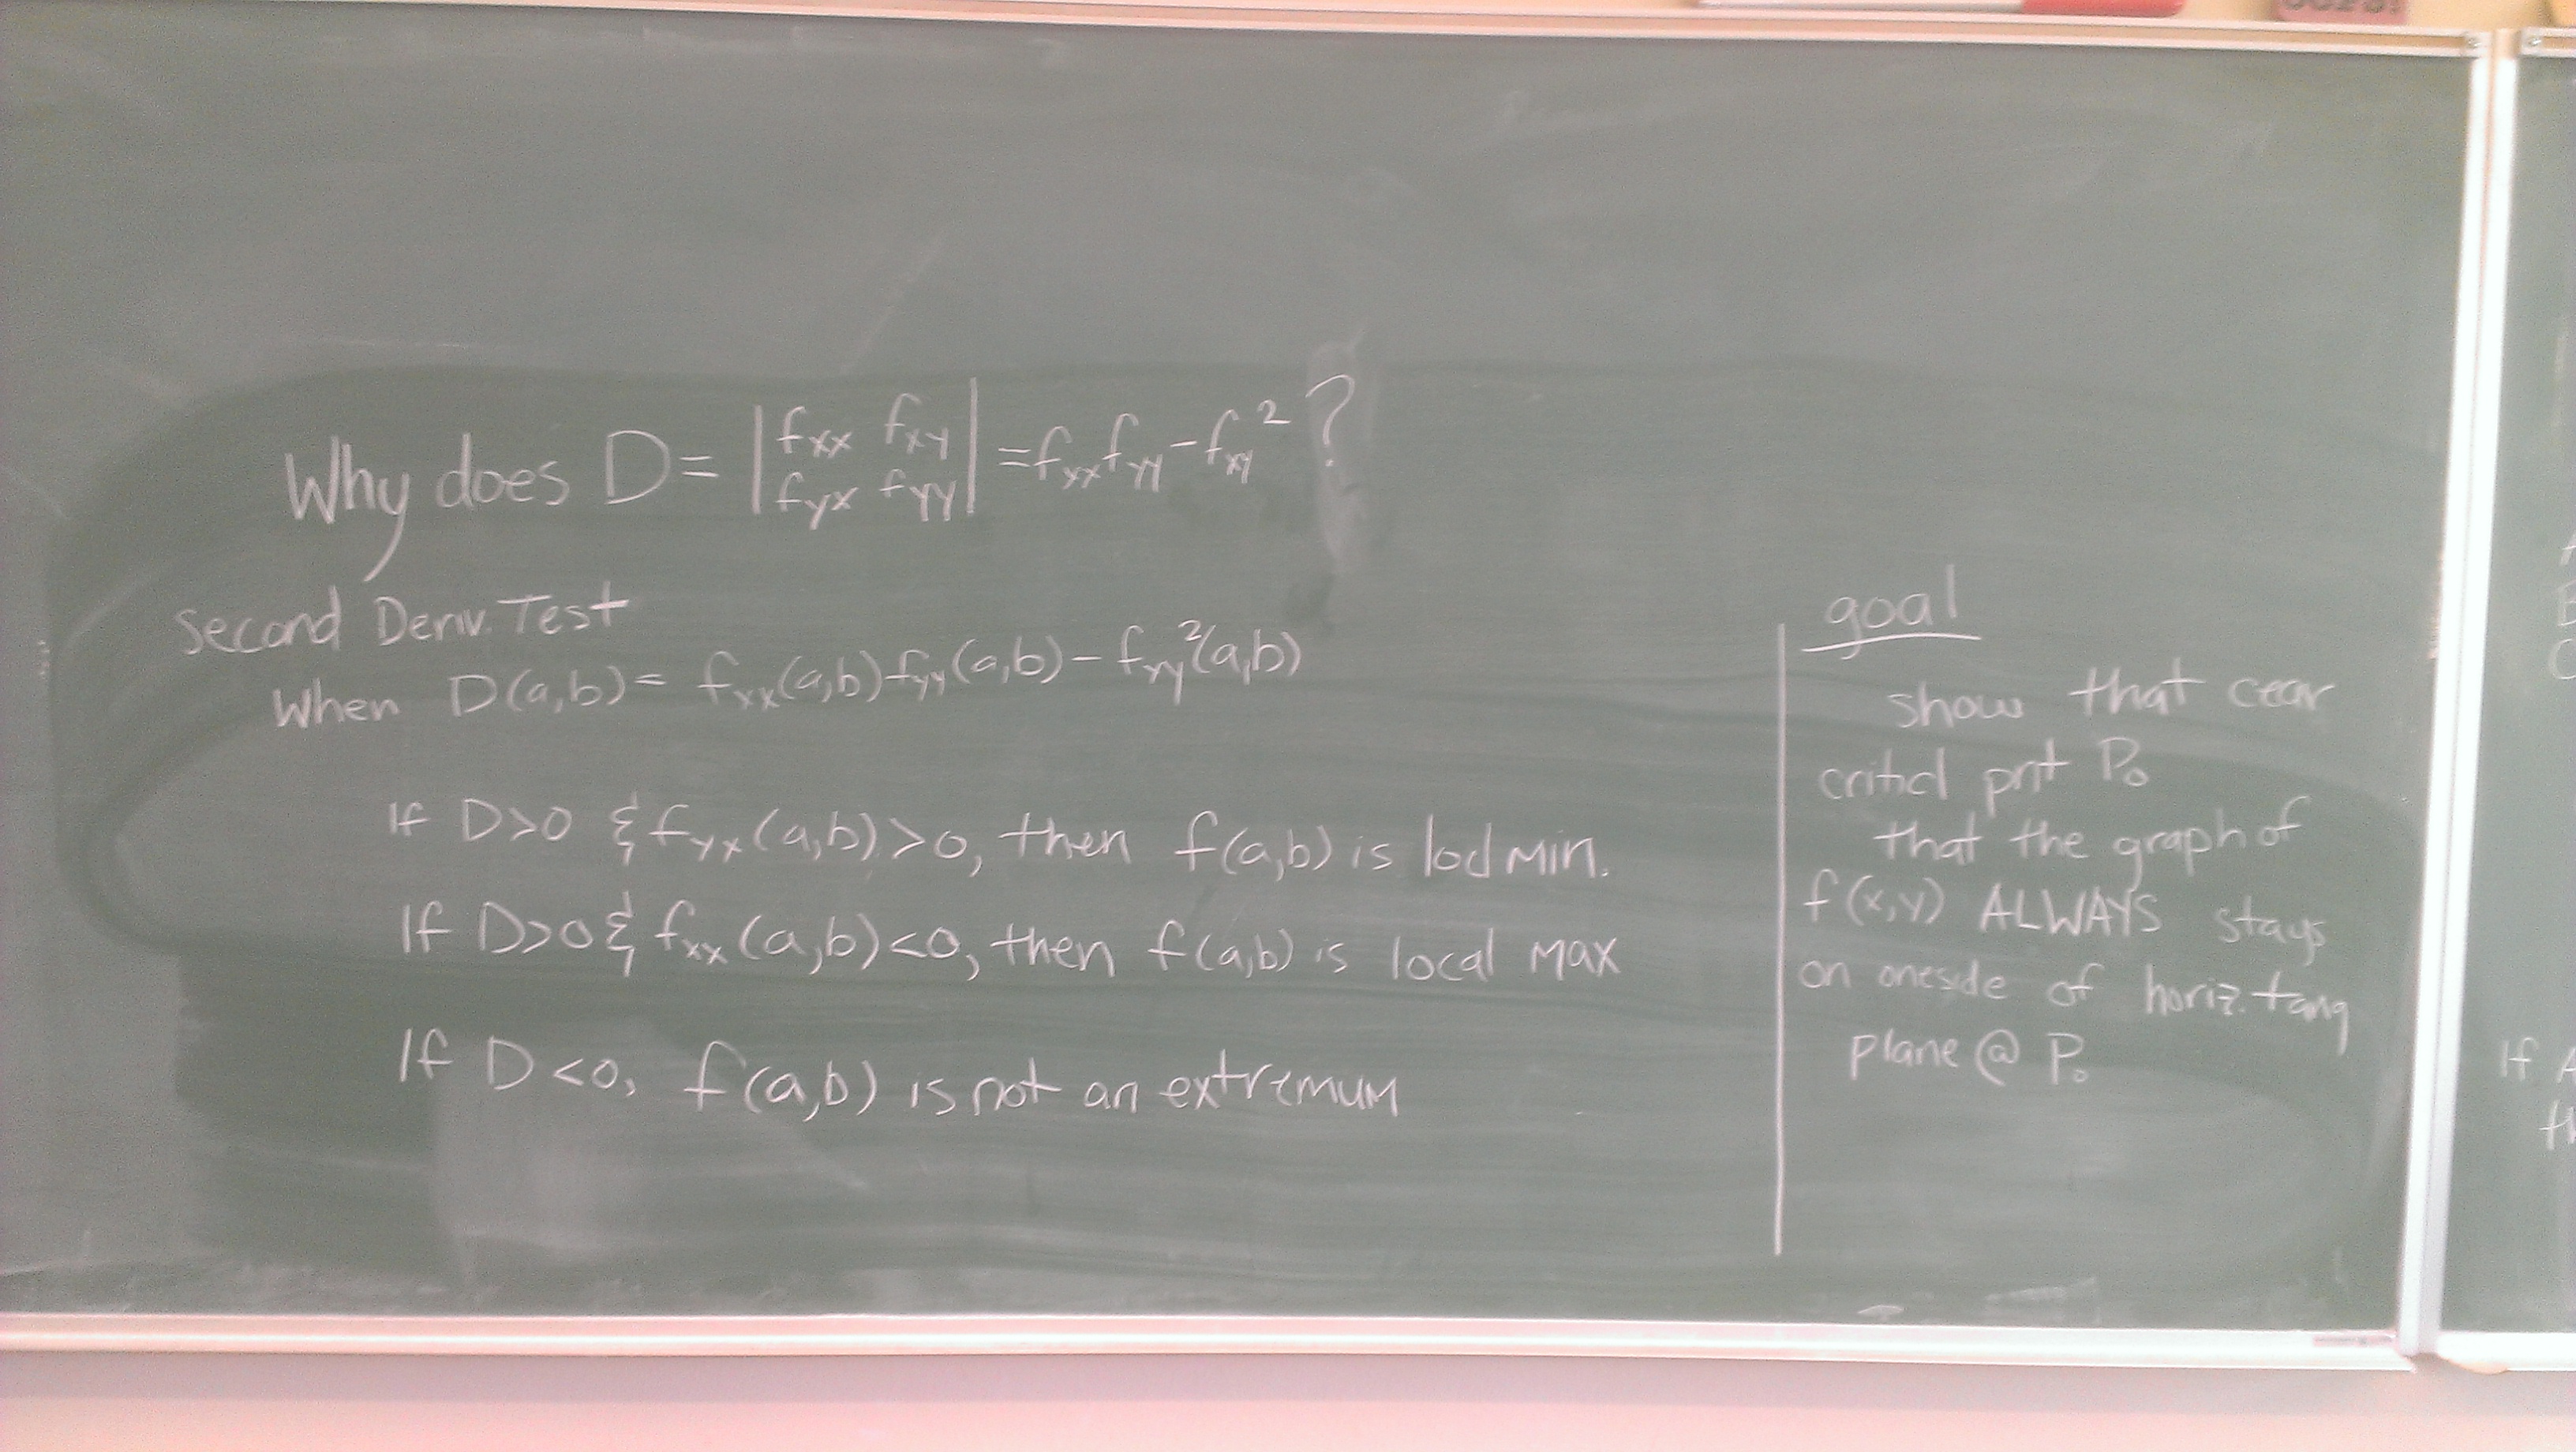 Why does D = | fxx fxy | = fxx fyy - fxy² ?
| fyx fyy |
Second Deriv. Test
When D(a,b) = fxx(a,b) fyy(a,b) - fxy²(a,b)
If D>0 & fyx(a,b)>0, then f(a,b) is locl min.
If D>0 & fxx(a,b)<0, then f(a,b) is local max
If D<0, f(a,b) is not an extremum
goal
show that
criticl pnt P₀
that the graph of
f(x,y) ALWAYS stays
on oneside of horiz. tang
plane @ P₀
If A
th